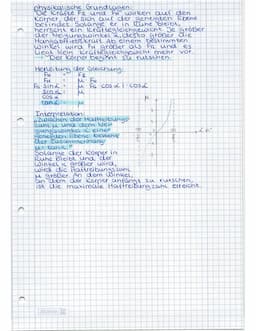 physikalische Grundlagen:
Die Kräfte FG und FH wirken auf den
Körper der sich auf der geneigten Ebene
befindet. Solange er in Ruhe bleibt,
herrscht ein Kräftegleichgewicht. Je größer
der Neigungswinkel α, desto größer die
Hangabtriebskraft. Ab einem bestimmten
Winkel wird FH größer als FR und es
liegt kein Kräftegleichgewicht mehr vor.
→ Der Körper beginnt zu rutschen.
Herleitung der Gleichung:
FH = FR
FH = μ · FN
FG sin α = μ · FG cos α | : cos α
sin α = μ
cos α
tan α = μ
Interpretation:
"Zwischen der Haftreibungs-
zahl μ und dem Nei-
gungswinkel α einer
geneigten Ebene besteht
der Zusammenhang
μ = tan α."
Solange der Körper in
Ruhe bleibt und der
Winkel α größer wird,
wird die Haftreibungszahl
μ größer. An dem Winkel,
an dem der Körper anfängt zu rutschen,
ist die maximale Haftreibungszahl erreicht.